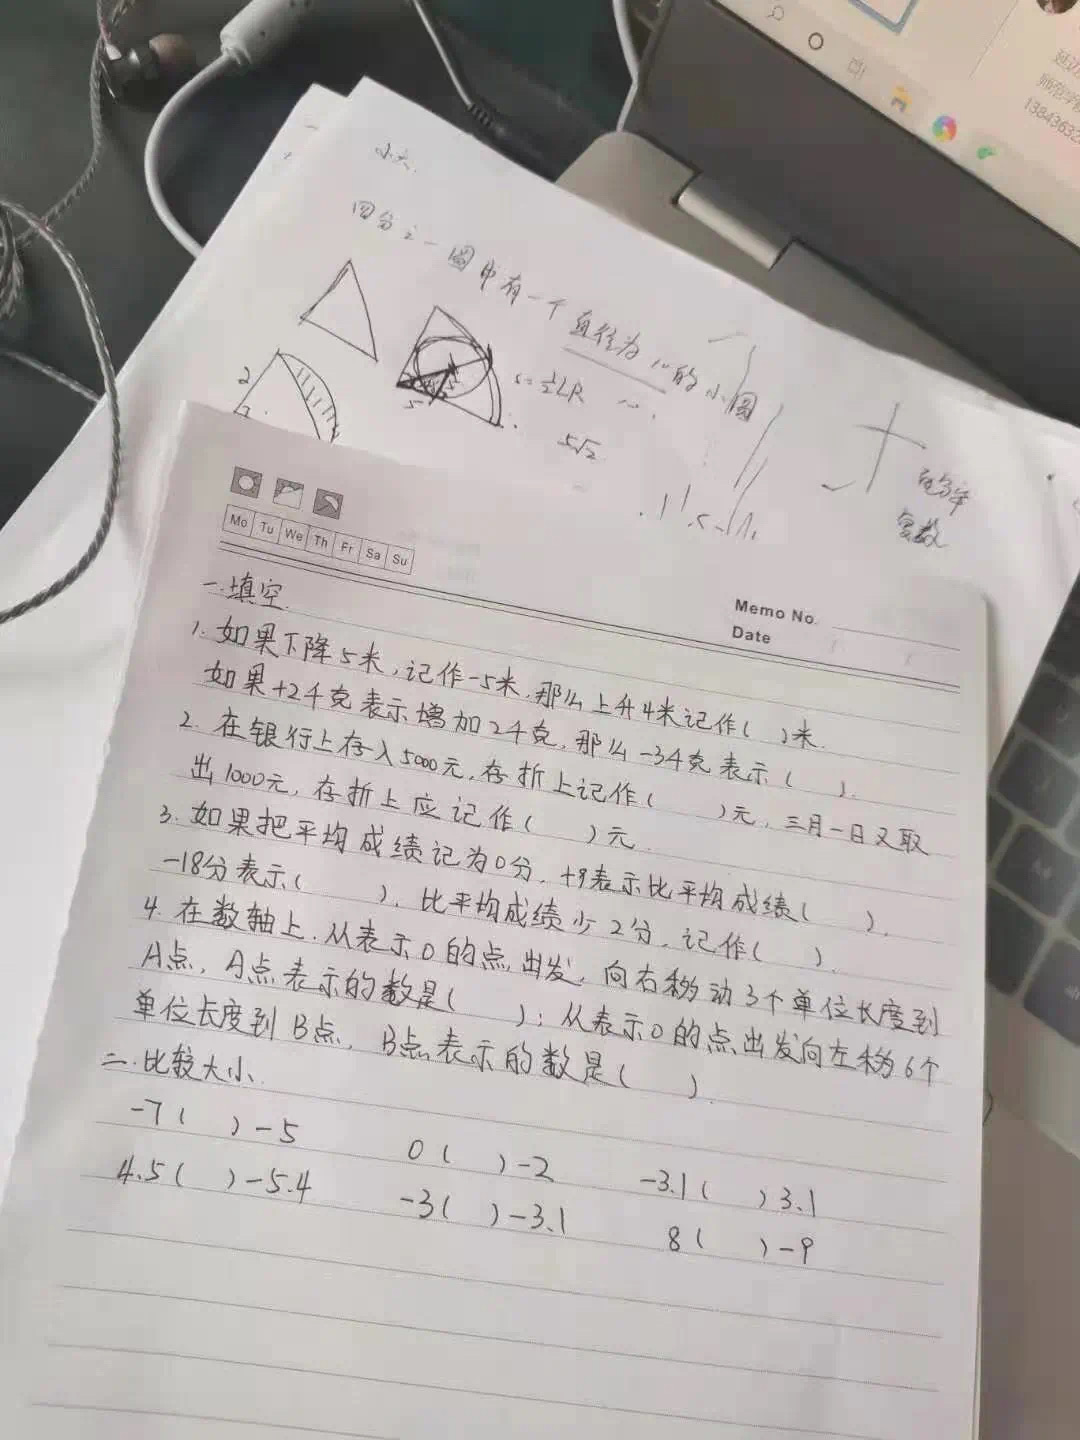 小六.
四分之一圆中有一个直径为10的小圆
S=½LR
5√2
2
5
复数
Mo Tu We Th Fr Sa Su
Memo No.
Date
一.填空.
1. 如果下降5米,记作-5米,那么上升4米记作( )米.
如果+2千克表示增加2千克,那么-34克表示( ).
2. 在银行上存入5000元,存折上记作( )元,三月一日又取
出1000元,存折上应记作( )元.
3. 如果把平均成绩记为0分,+9表示比平均成绩( ),
-18分表示( ),比平均成绩少2分,记作( ).
4. 在数轴上,从表示0的点出发,向右移动3个单位长度到
A点,A点表示的数是( );从表示0的点出发向左移6个
单位长度到B点,B点表示的数是( ).
二.比较大小.
-7( )-5 0( )-2 -3.1( )3.1
4.5( )-5.4 -3( )-3.1 8( )-9